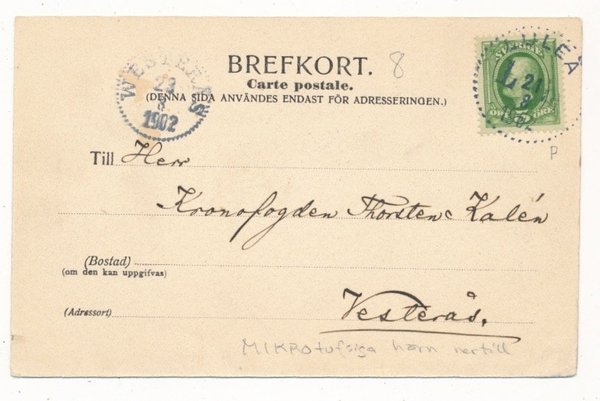 BREFKORT. 8
Carte postale.
(DENNA SIDA ANVÄNDES ENDAST FÖR ADRESSERINGEN.)
WESTERÅS
23
8
1902
SVERIGE
5
ÖRE
LULEÅ
L
21
8
P
Till Herr
Kronofogden Thorsten Kalén
(Bostad)
(om den kan uppgifvas)
(Adressort)
Vesterås.
MIKROtufsiga hörn nertill